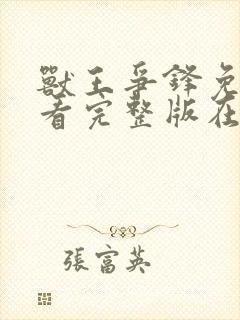 獸王爭鋒免
看完整版在
張富英